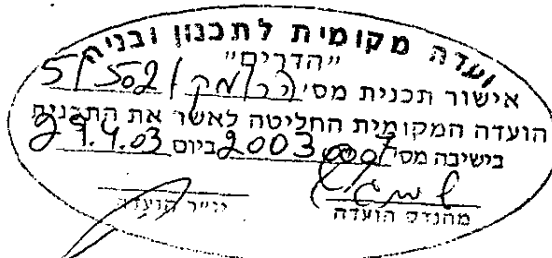 ועדה מקומית לתכנון ובניה
"הדרים"
אישור תכנית מס' הר/מק/502/5
הועדה המקומית החליטה לאשר את התכנית
בישיבה מס' 2003007 ביום 29.4.03
מהנדס הועדה יו"ר הועדה